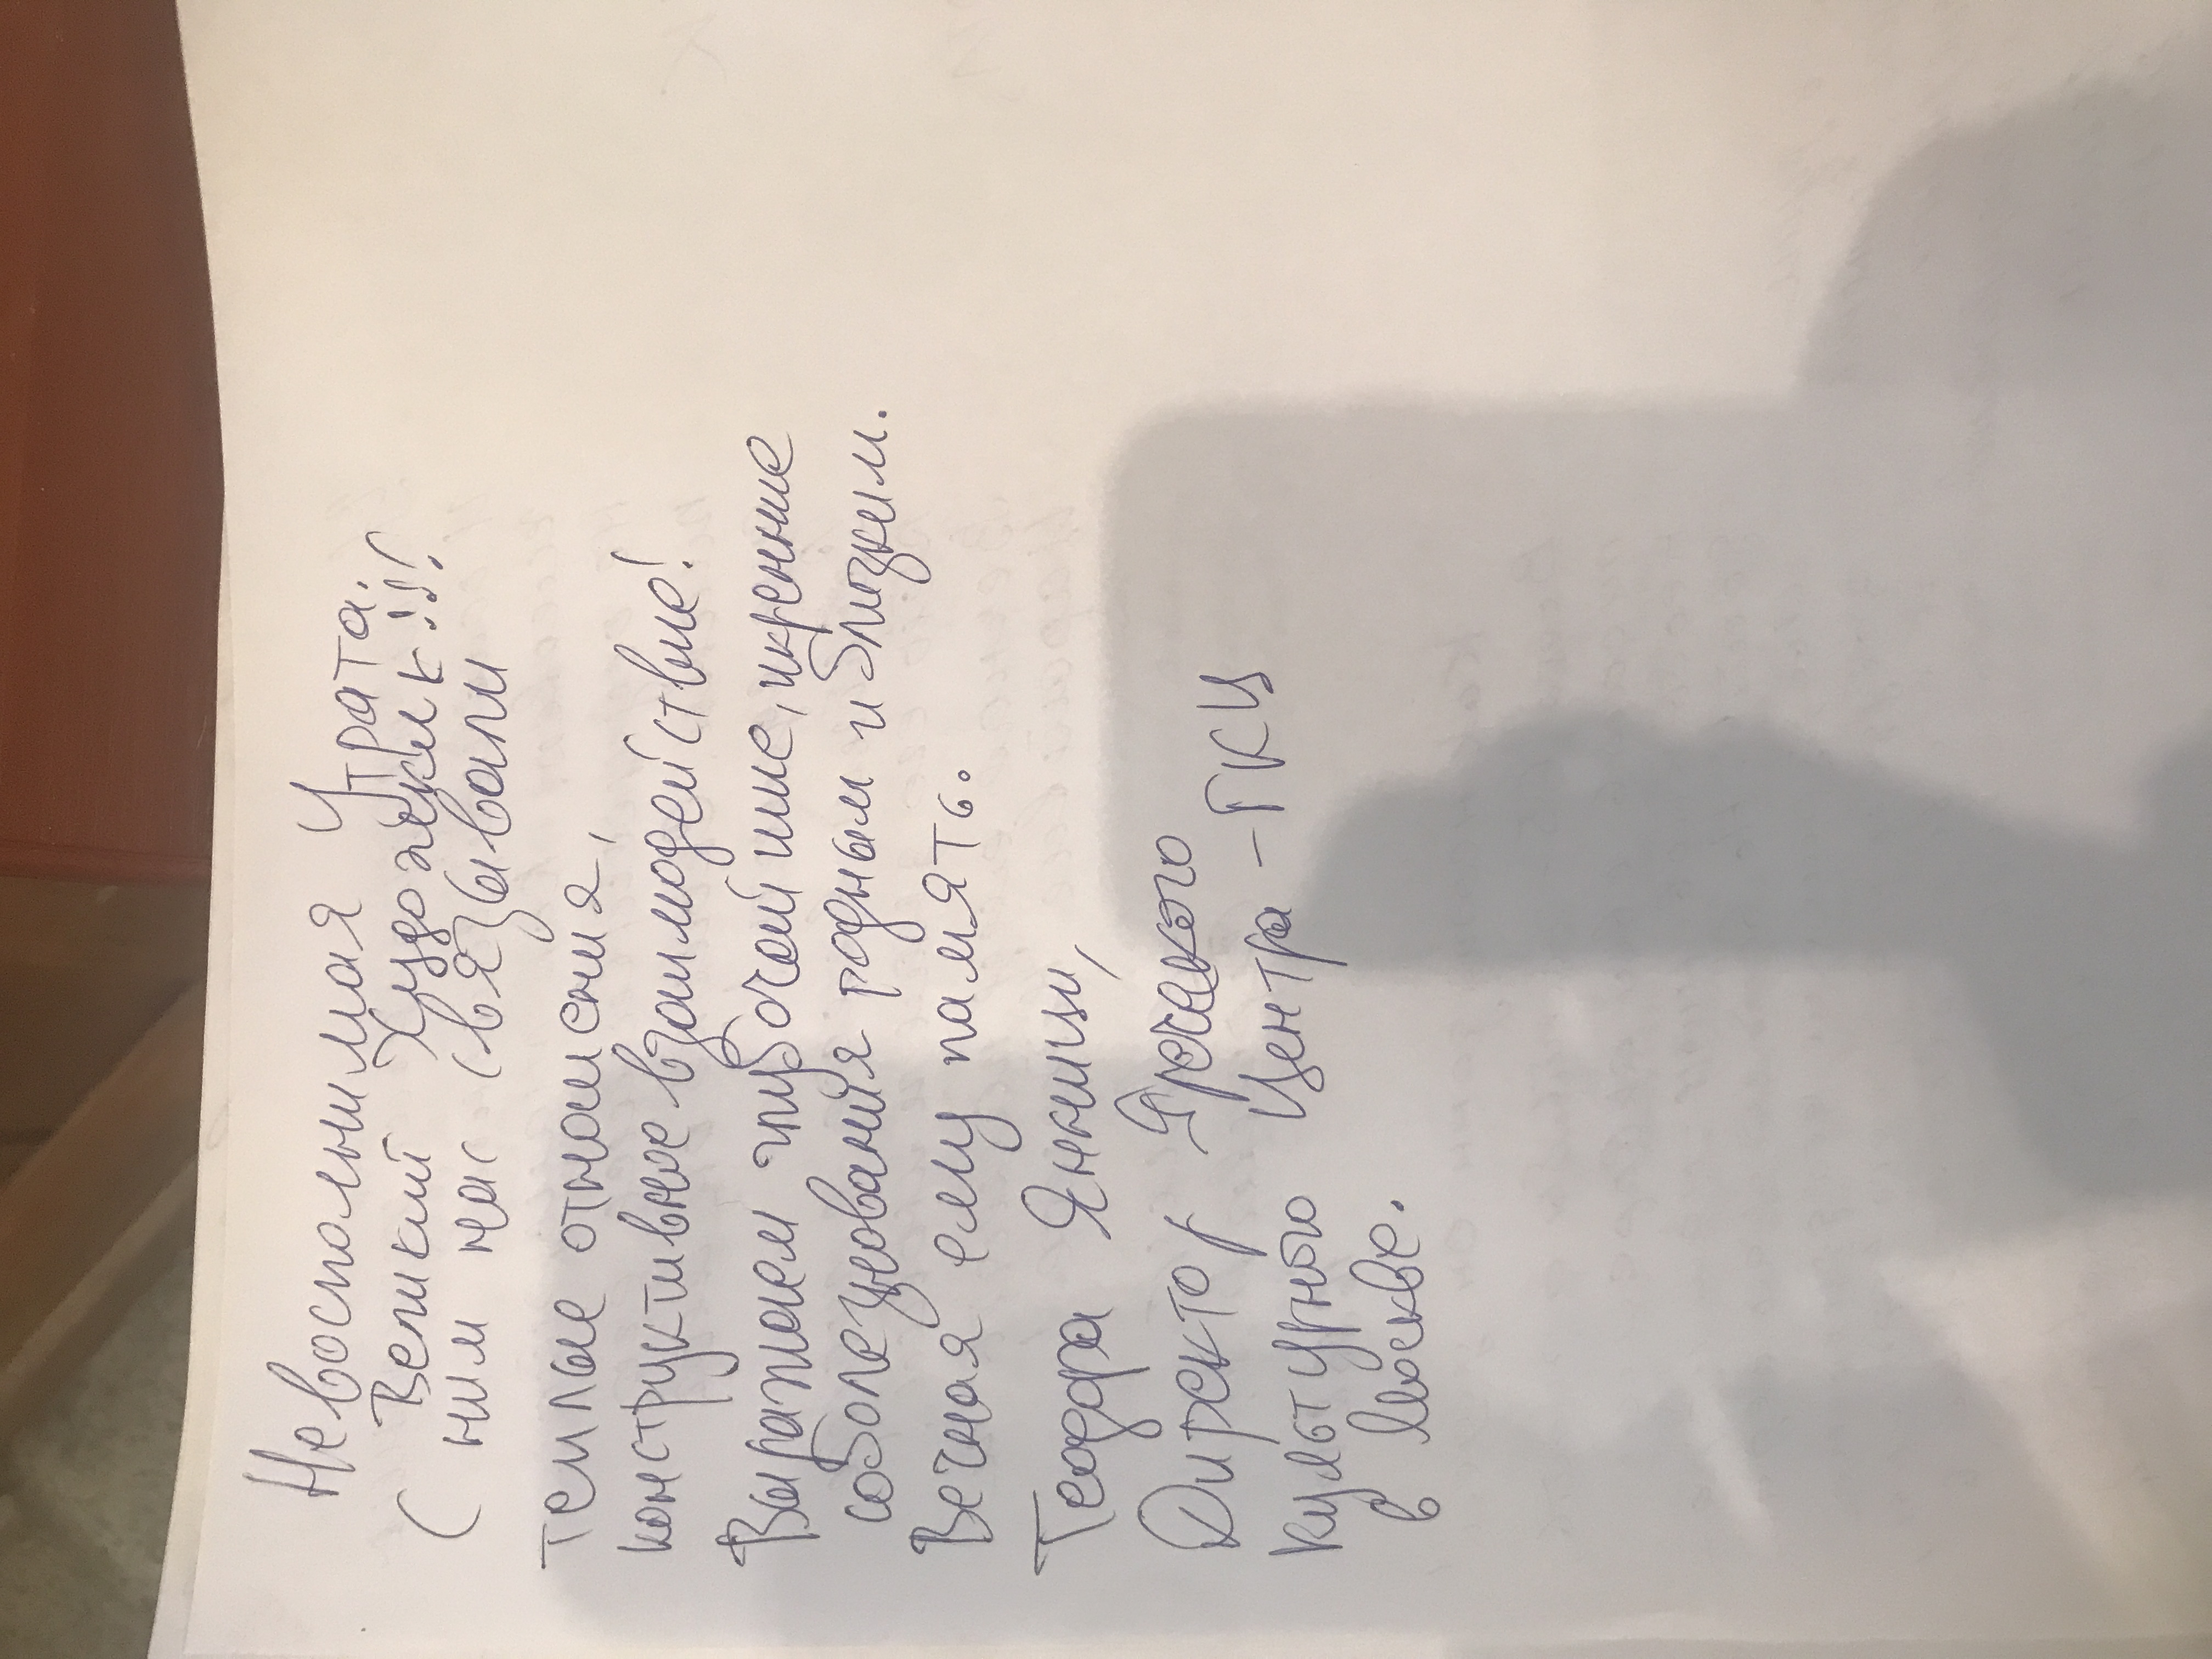 Невосполнимая утрата.
Великий Художник!!!
С ним нас связывали
теплые отношения,
конструктивное взаимодействие!
Выражаем глубочайшие, искренние
соболезнования родным и близким.
Вечная ему память.
Теодора Янници,
Директор Греческого
Культурного Центра - ГКЦ
в Москве.